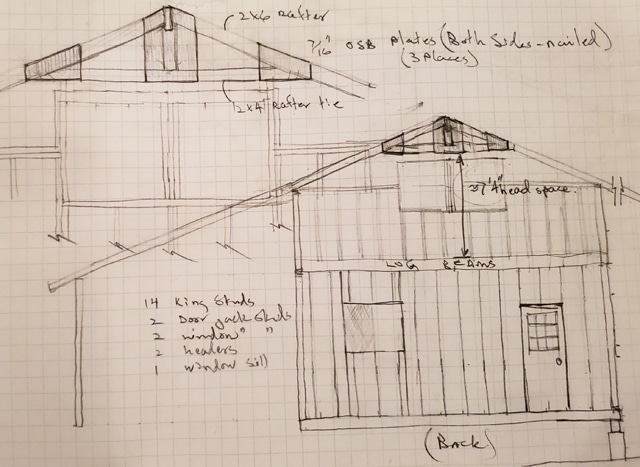 2x6 Rafter
7/16" OSB plates (Both Sides-nailed)
(3 places)
2x4 Rafter tie
7'4" head space
LOG BEAMS
14 King Studs
2 Door jack studs
2 window " "
2 headers
1 window sill
(Back)